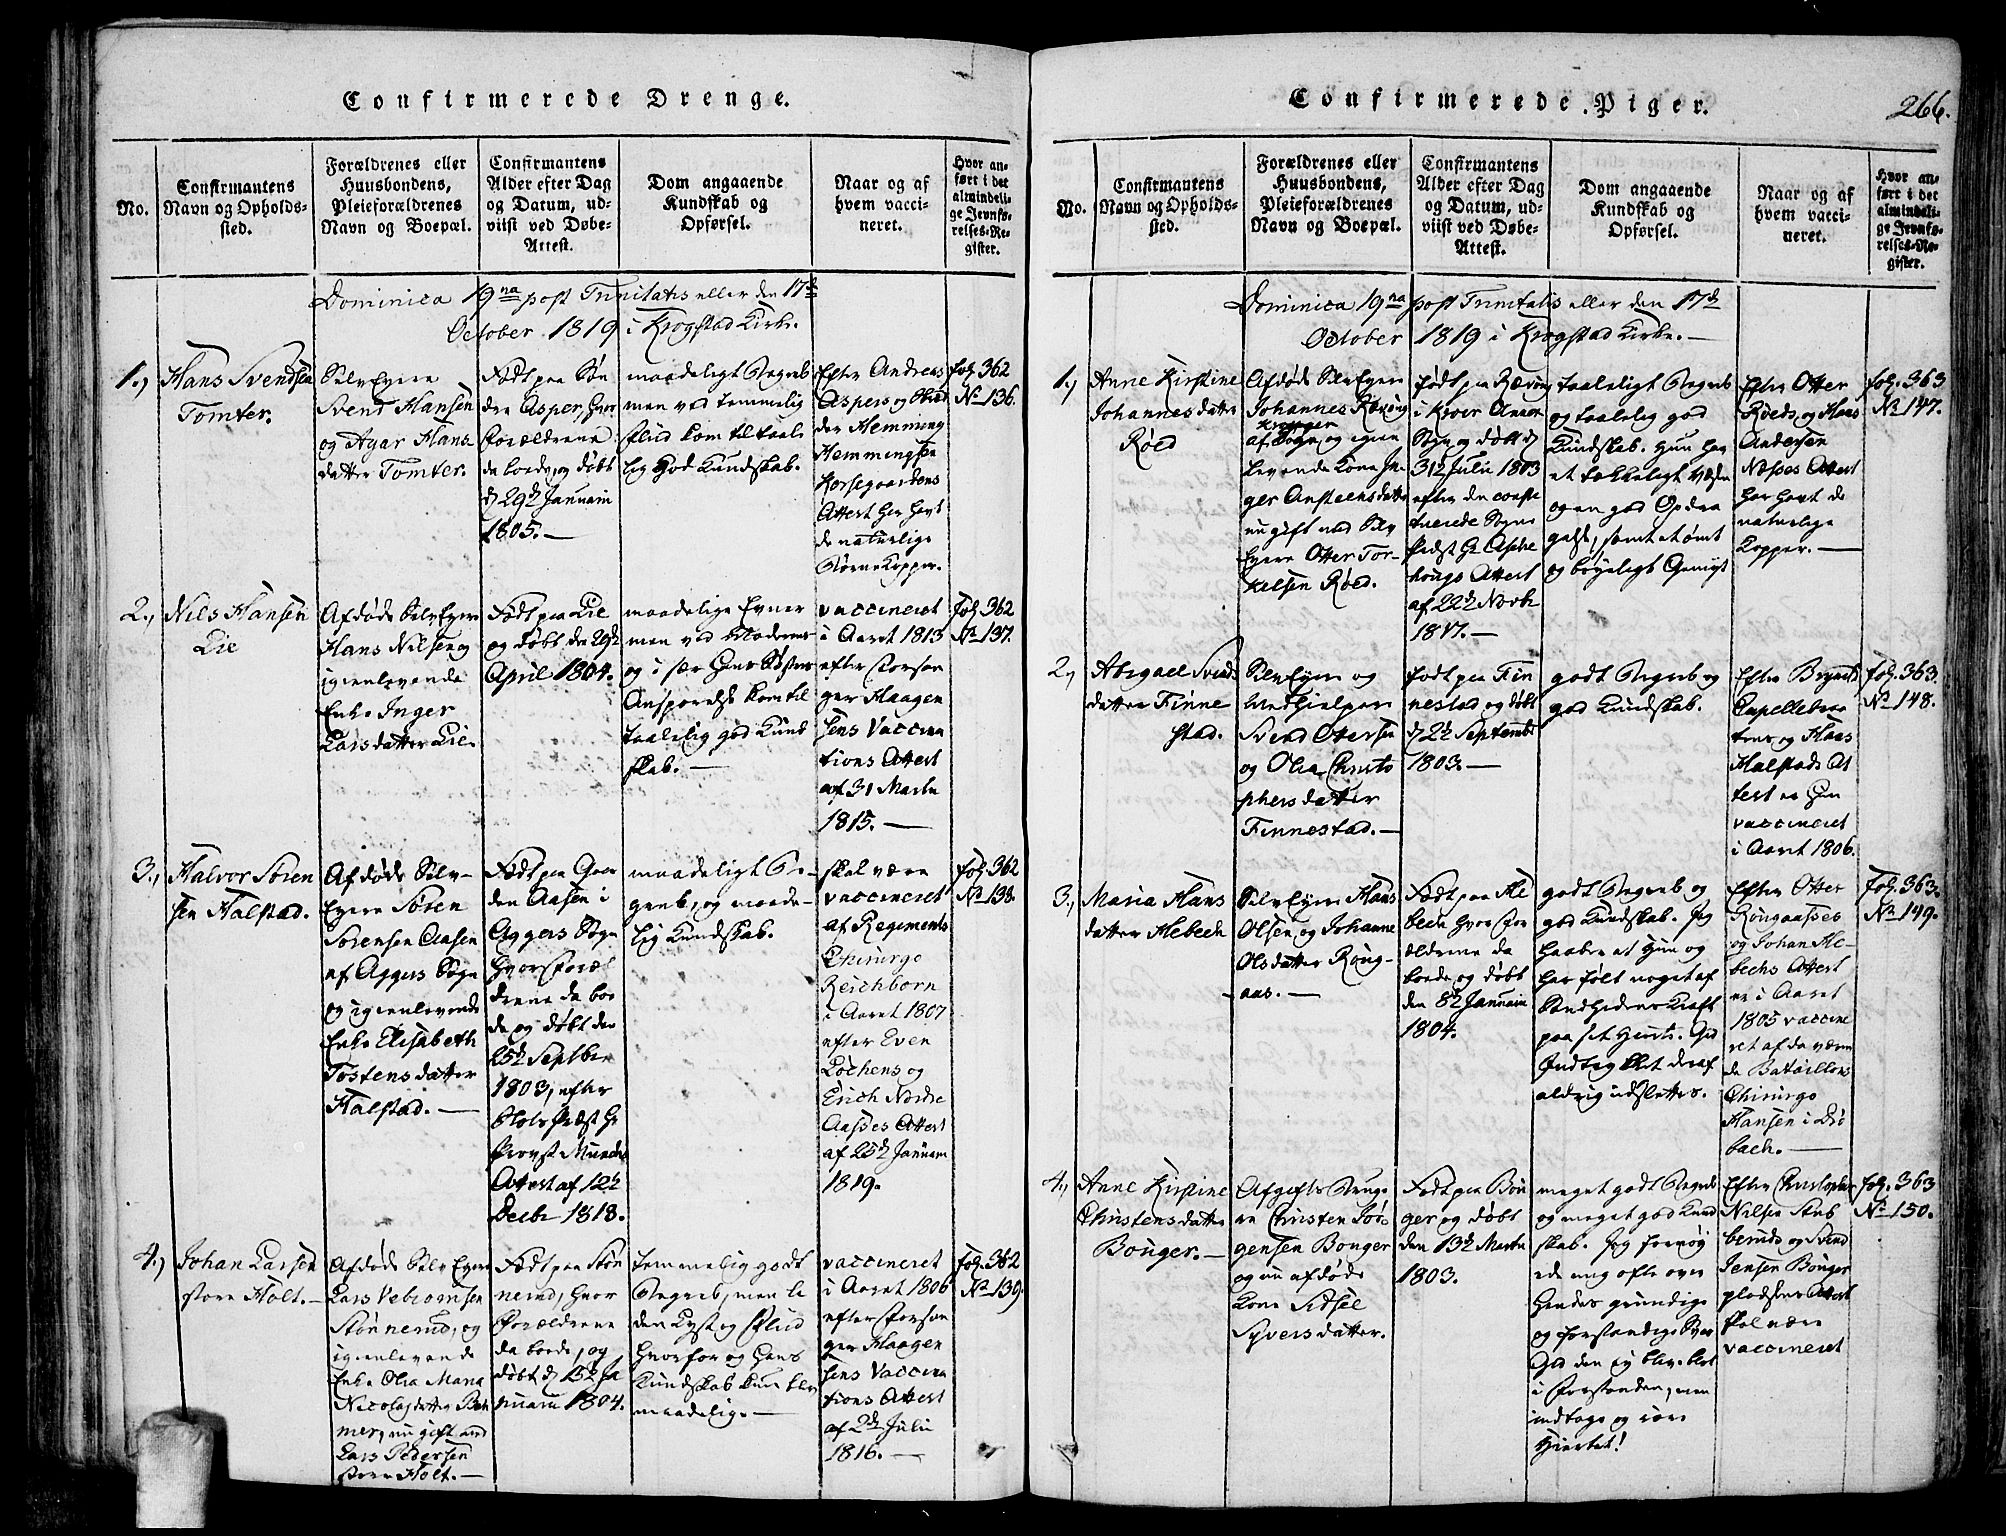 Confirmerede Drenge.
No.
Confirmantens
Navn og Opholds-
sted.
Forældrenes eller
Huusbondens,
Pleieforældrenes
Navn og Boepæl.
Confirmantens
Alder efter Dag
og Datum, ud-
viist ved Døbe-
Attest.
Dom angaaende
Kundskab og
Opførsel.
Naar og af
hvem vacci-
neret.
Hvor an-
ført i det
almindeli-
ge Jevnfø-
relses-Re-
gister.
Dominica 19na post Trinitatis eller den 17de
October 1819 i Krogstad Kirke.
1.,
Hans Svendsen
Tomter.
Selv Eyere
Svend Hansen
og Agar Hans
datter Tomter.
Født paa Søn
dre Asper, hvor
Forældrene
da boede, og døbt
d 29de Januarii
1805. —
maadeligt Begreb
men ved temmelig
Fliid kom til taale
lig god Kundskab.
Efter Andreas
Aspers og
Hemming
Hemmingsen
Korsegaardens
Attest har havt
de naturlige
Børne Kopper.
fol. 362
No 136.
2.,
Nils Hansen
Lie
Afdøde Selv Eyere
Hans Nilsen og
igienlevende
Enke Inger
Larsdatter Lie.
Født paa Lie
og døbt den 29de
April 1804.
maadelige Evner
men ved Moderens
og i sær hans Søsters
Ansporelse kom til
taalelig god Kund
skab. —
vaccineret
i Aaret 1813
efter Forsan
ger Haagen
sens Vaccina
tions Attest
af 31 Martii
1815. —
fol. 362
No 137.
3.,
Halvor Søren
sen Halstad.
Afdøde Selv-
Eyere Søren
Sørensen Aasen
af Aggers Sogn
og igienlevende
Enke Elisabeth
Tostensdatter
Halstad. —
Født paa Gaar
den Aasen i
Aggers Sogn
hvor Foræl
drene da boe
de og døbt den
25de Septbr
1803, efter
Slots Præst Hr
Provst Munchs
Attest af 12te
Decbr 1818.
maadeligt Be-
greb, og maade-
lig Kundskab.
skal være
vaccineret
af Regiments
Chirurgo
Reichborn
i Aaret 1807
efter Even
Løchens og
Erich Nordre
Aasses Attest
af 25de Januarii
1819.
fol. 362
No 138.
4.,
Johan Larsen
store Holt. —
Afdøde Selv Eyere
Lars Vebiørnsen
Stønnerud, og
igienlevende
Enke Olia Maria
Nicolaidatter Boh
mer, nu gift med
Lars Pedersen
store Holt. —
Født paa Støn
nerud, hvor
Forældrene
da boede, og
døbt d 15de Ja
nuarii 1804.
temmelig godt
Begreb, men li
den Lyst og Fliid
hvorfor og hans
Kundskab kun blev
maadelig. —
vaccineret
i Aaret 1806
efter Forsan
ger Haagen
sens Vaccina
tions Attest
af 2de Julii
1816. —
fol. 362
No 139.
Confirmerede Piger.
266.
No.
Confirmantens
Navn og Opholds-
sted.
Forældrenes eller
Huusbondens,
Pleieforældrenes
Navn og Boepæl.
Confirmantens
Alder efter Dag
og Datum, ud-
viist ved Døbe-
Attest.
Dom angaaende
Kundskab og
Opførsel.
Naar og af
hvem vacci-
neret.
Hvor an-
ført i det
almindeli-
ge Jevnfø-
relses-Re-
gister.
Dominica 19na post Trinitatis eller den 17de
October 1819 i Krogstad Kirke. —
1.,
Anne Kirstine
Johannesdatter
Røed
Afdøde Selv Eyer
Johannes
af Sogn, og igien
levende Kone In
ger Anstensdatter
nu gift med Selv
Eyere Otter Tor-
kelsen Røed.
født paa
i Kroer Annex
Sogn og døbt d
31te Julii 1803
efter den consti
tuerede Sogne
Præst Hr Asche
hougs Attest
af 22de Novbr
1817. —
taaleligt Begreb
og taalelig god
Kundskab. Hun har
et tækkeligt Væsen
og en god Opdra
gelse, samt et ømt
og bøyeligt Gemyt
Efter Otter
Røeds, og Hans
Andersen
Nesses Attest
har havt de
naturlige
Kopper. —
fol. 363
No 147.
2.,
Abigael Svends
datter Finne
stad.
Selv Eyere og
Medhielper
Svend Ottersen
og Olia Christo
phersdatter
Finnestad. —
født paa Fin
nestad og døbt
d 2de Septembr
1803. —
godt Begreb og
god Kundskab.
Efter
og Hans
Halstads At
test er hun
vaccineret
i Aaret 1806.
fol. 363.
No 148.
3.,
Maria Hans
datter Hebech
Selv Eyere Hans
Olsen og Johanne
Olsdatter Røng-
aas. —
Født paa He
bech hvor For
ældrene da
boede, og døbt
den 8de Januarii
1804.
godt Begreb og
god Kundskab. Jeg
haaber at hun og
har følt noget af
Sandhedens Kraft
paa sit Hierte. Gid
Indtrykket deraf
aldrig udslettes.
Efter Otter
Røngaasses
og Johan He-
bechs Attest
er i Aaret
1805 vaccine
ret af da være
de Batallions
Chirurgo
Hansen i Drø
bach. —
fol. 363.
No 149.
4.,
Anne Kirstine
Christensdatter
Bonger. —
Afgifts Bruge
re Christen Jør
gensen Bonger
og nu afdøde
Kone Sidsel
Syversdatter.
Født paa Bon
ger og døbt
den 13de Martii
1803.
meget godt Begreb
og meget god Kund
skab. Jeg fornøy
ede mig ofte over
hendes grundige
og forstandige Svar
Gid den ey blive blot
i Forstanden, men
indtage og
Hiertet!
Efter Christopher
Nilsen
og Svend
Jensen Bonger
pladsens Attest
skal være
vaccineret
fol. 363
No 150.